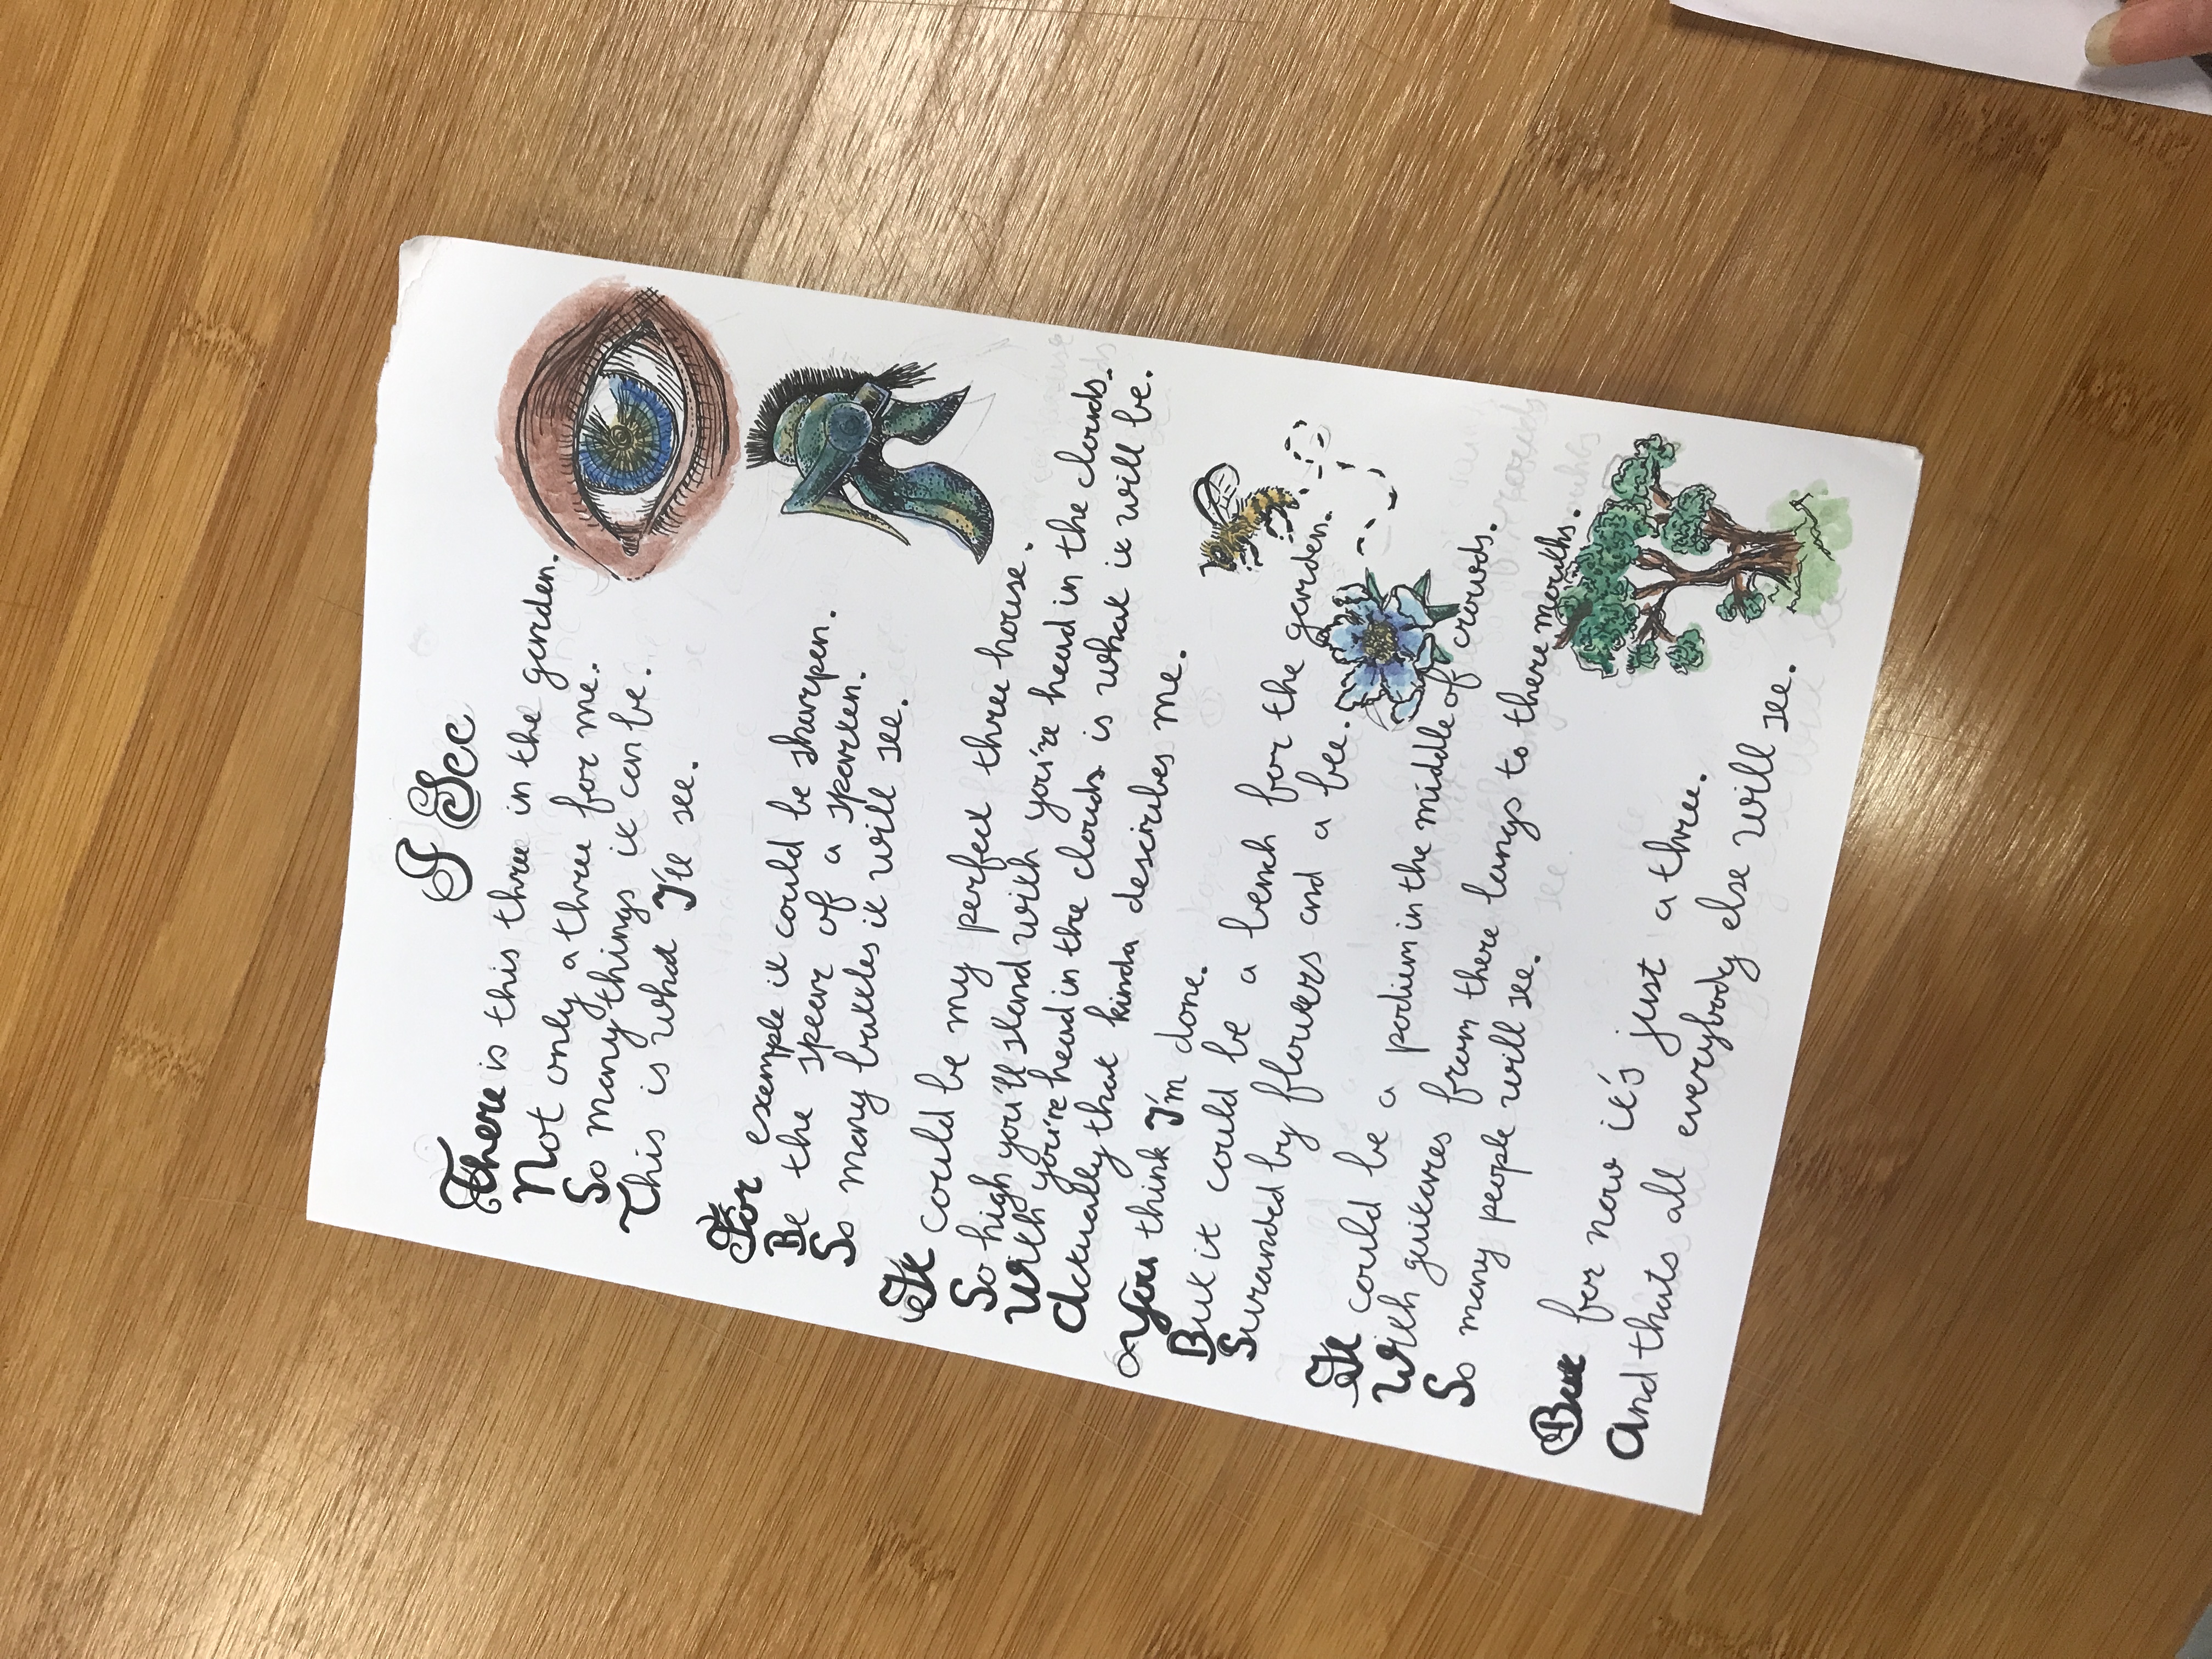 I See
There is this three in the garden.
Not only a three for me.
So many things it can be.
This is what I'll see.
For example it could be sharpen.
Be the spear of a sparten.
So many battles it will see.
It could be my perfect three house.
So high you'll stand with you're head in the clouds.
With you're head in the clouds is what it will be.
Actually that kinda describes me.
You think I'm done.
But it could be a bench for the garden.
Suranded by flowers and a bee.
It could be a podium in the middle of crowds.
With guitares from there lungs to there mouths.
So many people will see.
But for now it's just a three.
And thats all everybody else will see.